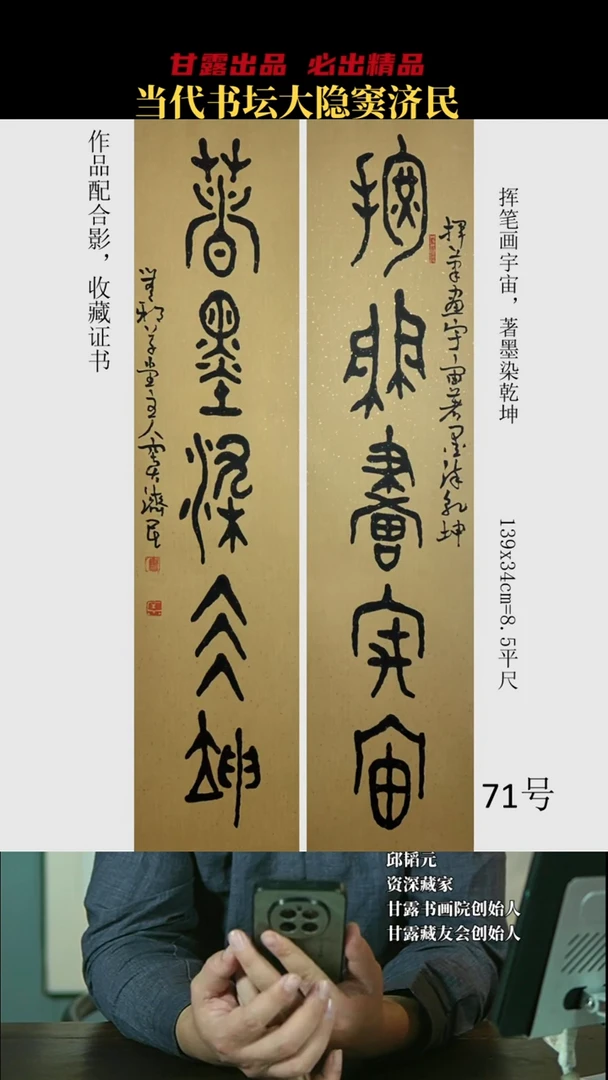 甘露出品 必出精品
当代书坛大隐窦济民
挥笔画宇宙，著墨染乾坤
139x34cm=8.5平尺
71号
挥笔画宇宙著墨染乾坤
挥笔画宇宙
著墨染乾坤
草堂主人窦济民
作品配合影，收藏证书
邱韬元
资深藏家
甘露书画院创始人
甘露藏友会创始人